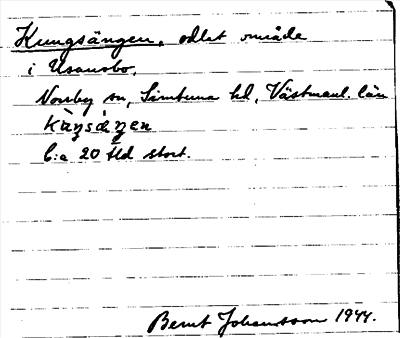 Kungsängen, odlat område
i Usansbo,
Norrby sn, Simtuna hd, Västmanl. län
kàŋsǽŋen
C:a 20 tld stort.
Bernt Johansson 1944.